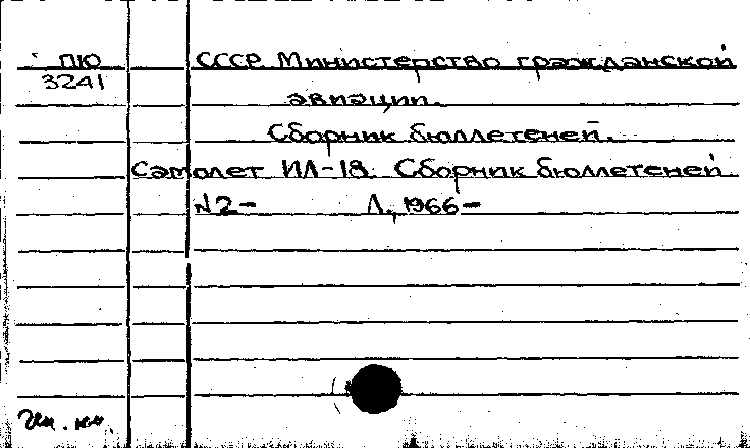 ПЮ СССР Министерство гражданской
3241
авиации.
Сборник бюллетеней.
Самолет ИЛ-18. Сборник бюллетеней
N2- Л., 1966-